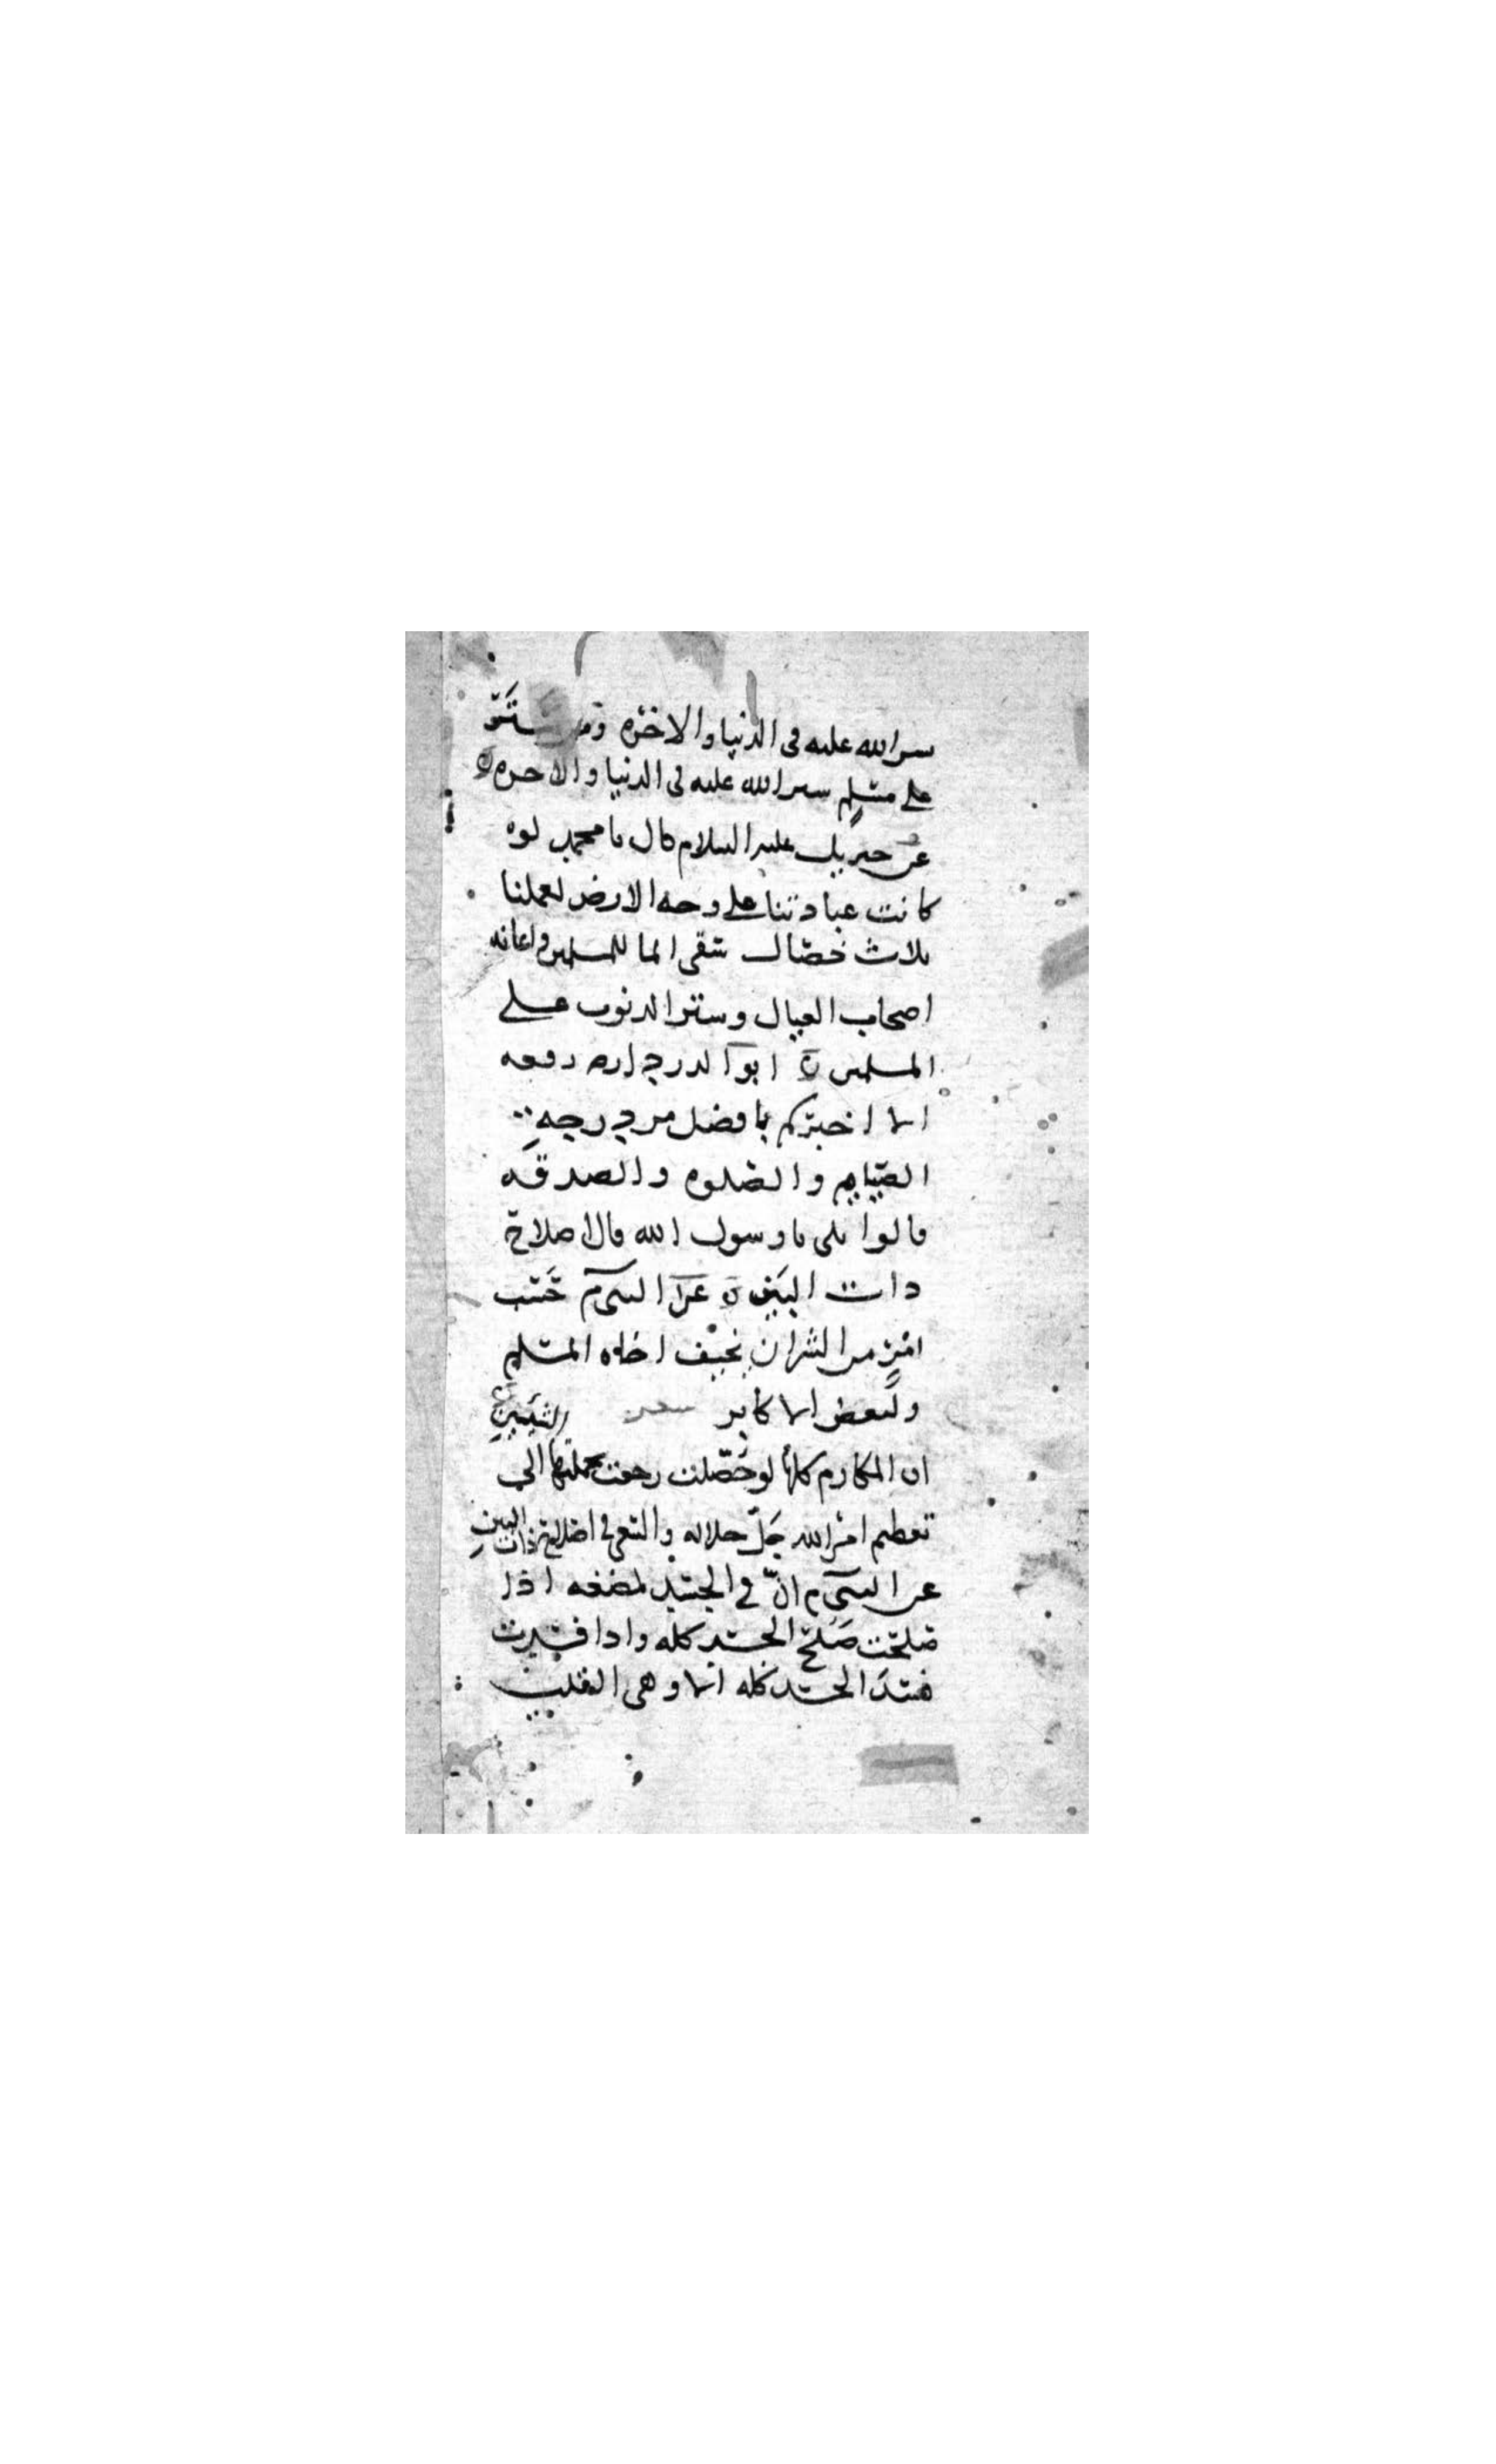 يسر الله عليه في الدنيا والاخره ومن ستر
على مسلم ستر الله عليه في الدنيا والاخره
عن جبريل عليه السلام قال يا محمد لو
كانت عبادتنا على وجه الارض لعملنا
ثلاث خصال سقى الما للمسلمين واعانه
اصحاب العيال وستر الذنوب على
المسلمين ابو الدرد ارم رفعه
الا اخبركم بافضل من درجه
الصيام والصلوه والصدقه
قالوا بلى يا رسول الله قال اصلاح
ذات البين عن النبي م حسب
امرٍ من الشر ان يخيف اخاه المسلم
ولبعض الاكابر شعر
ان المكارم كلها لو حُصّلت رجعت بجملتها الى
تعظيم امر الله جلّ جلاله والسعي في اصلاح ذات البينِ
عن النبي م انّ في الجسد لمضغه اذا
صلحت صَلح الجسد كله واذا فسدت
فسدَ الجسد كله الا وهي القلب